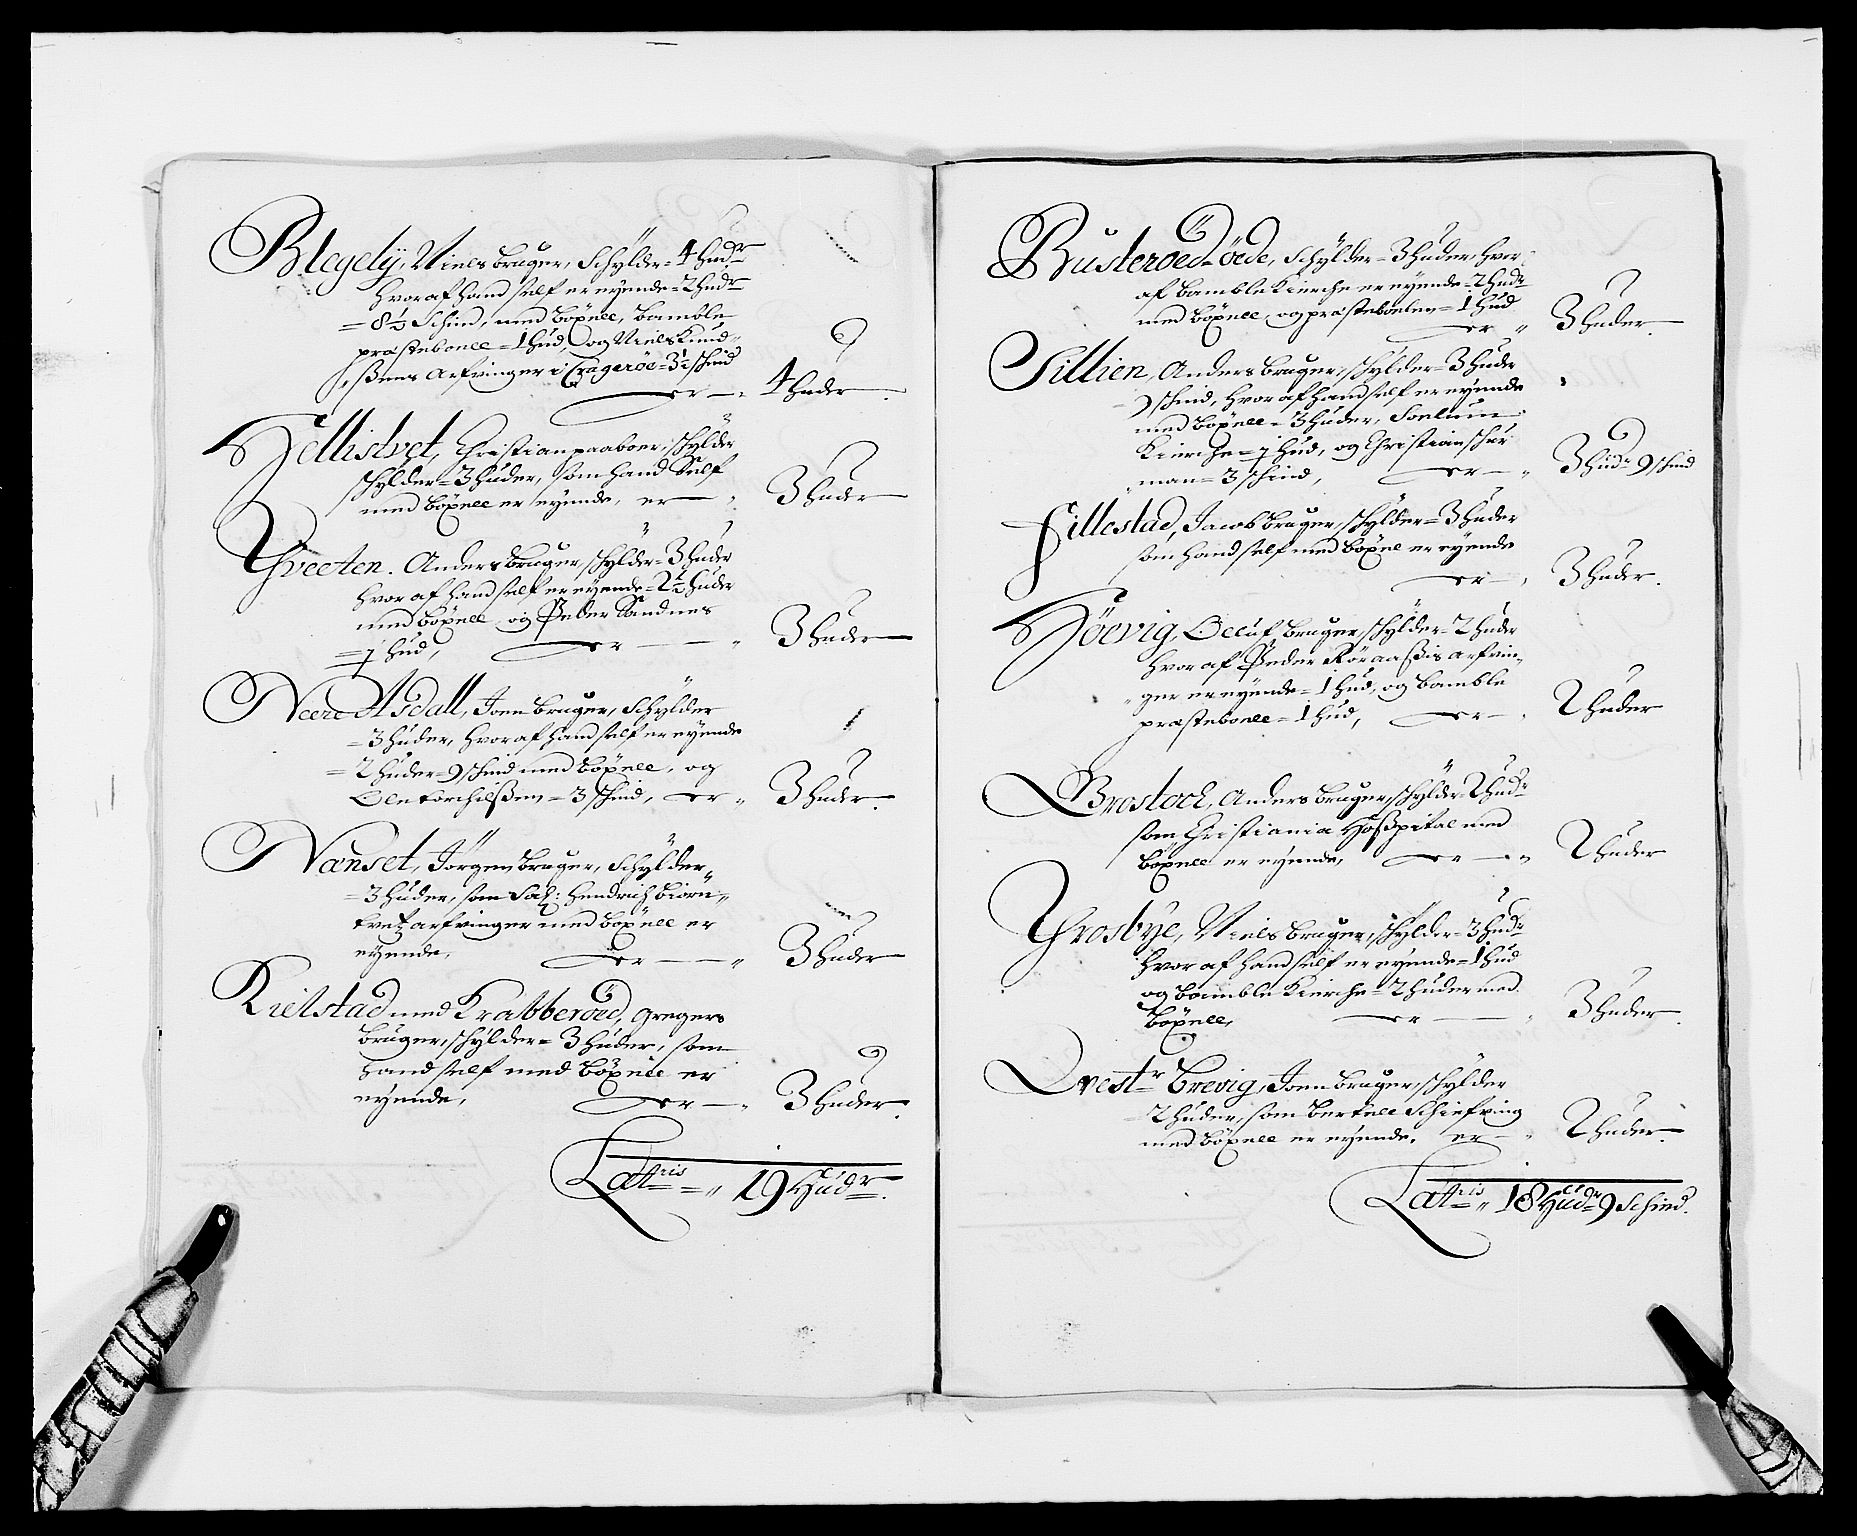 Blegely, Niels bruger, Schylder = 4 hudr
hvoraf hand self er eyende = 2 hudr
= 8½ Schind, med böxell, bamble
præstebolle = 1 hud, og Niels Knud-
ßens Arfvinger i Cragerøe = 3½ schind
er — 4 huder
Hellistvet, Christian paaboer, schylder
schylder = 3 huder, som hand Self
med böxell er eyende, er — 3 huder
Tveeten. Anders bruger, schylder = 3 huder
hvoraf hand self er eyende = 2½ huder
med böxell, og Peder Sandnes
= ½ hud, er — 3 huder
Neere Asdall, Joen bruger, Schylder
= 3 huder, hvoraf hand self er eyende
= 2 huder = 9 schind med böxell, og
Ole torchilßen = 3 schind, er — 3 huder.
Nanset, Jörgen bruger, Schylder
= 3 huder, som Sal: Hendrich biörn-
tvetz arfvinger med böxell er
eyende, er — 3 huder
Kielstad med Krabberöed, gregers
bruger, schylder = 3 huder, som
hand self med böxell er
eyende, er — 3 huder.
Latris = 19 Hudr.
Busteroed = öede, schylder = 3 huder, hvor-
af bamble Kierche er eyende = 2 hudr
med böxell, og præstebolen = 1 hud
er 3 huder.
Tillien, Anders bruger, schylder = 3 huder
9 schind, hvoraf hand self er eyende
med böxell = 3 huder, Soelum
Kierche = ½ hud, og Christian schur
man = 3 schind, er — 3 hudr 9 schind
Fillestad, Jacob bruger, schylder = 3 huder
som hand self med böxel er eyende
er — 3 huder.
Höevig, Olluf bruger, schylder = 2 huder
hvoraf Peder Röraaßis arfvin-
ger er eyende = 1 hud, og bamble
præstebolle = 1 hud, er — 2 huder
Brostoch, Anders bruger, schylder = 2 hudr
som Christiania Hoßpital med
böxell er eyende, er — 2 huder
Grosbye, Niels bruger, schylder = 3 hudr
hvoraf hand self er eyende = 1 hud
og bamble Kierche = 2 huder med
böxell, er — 3 huder.
Westr brevig, Joen bruger, schylder
= 2 huder, som bertell Schiefving
med böxell er eyende, er — 2 huder.
Latris 18 Hudr 9 Schind.